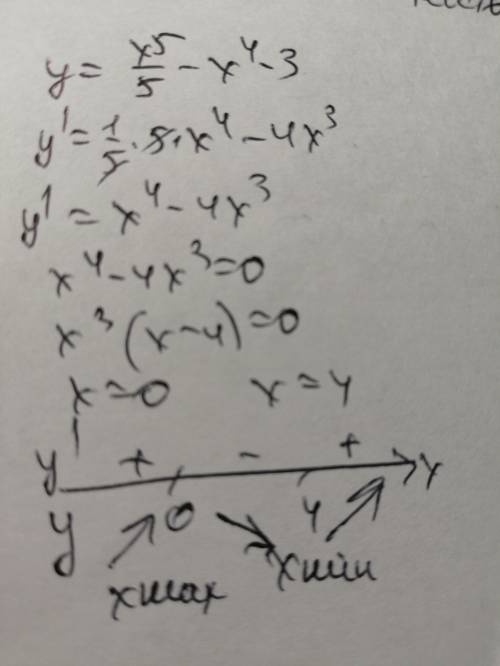 y = x⁵/5 - x⁴ - 3
y' = 1/5 · 5 · x⁴ - 4x³
y' = x⁴ - 4x³
x⁴ - 4x³ = 0
x³(x - 4) = 0
x = 0 x = 4
y' + - + x
y 0 4
xmax xmin